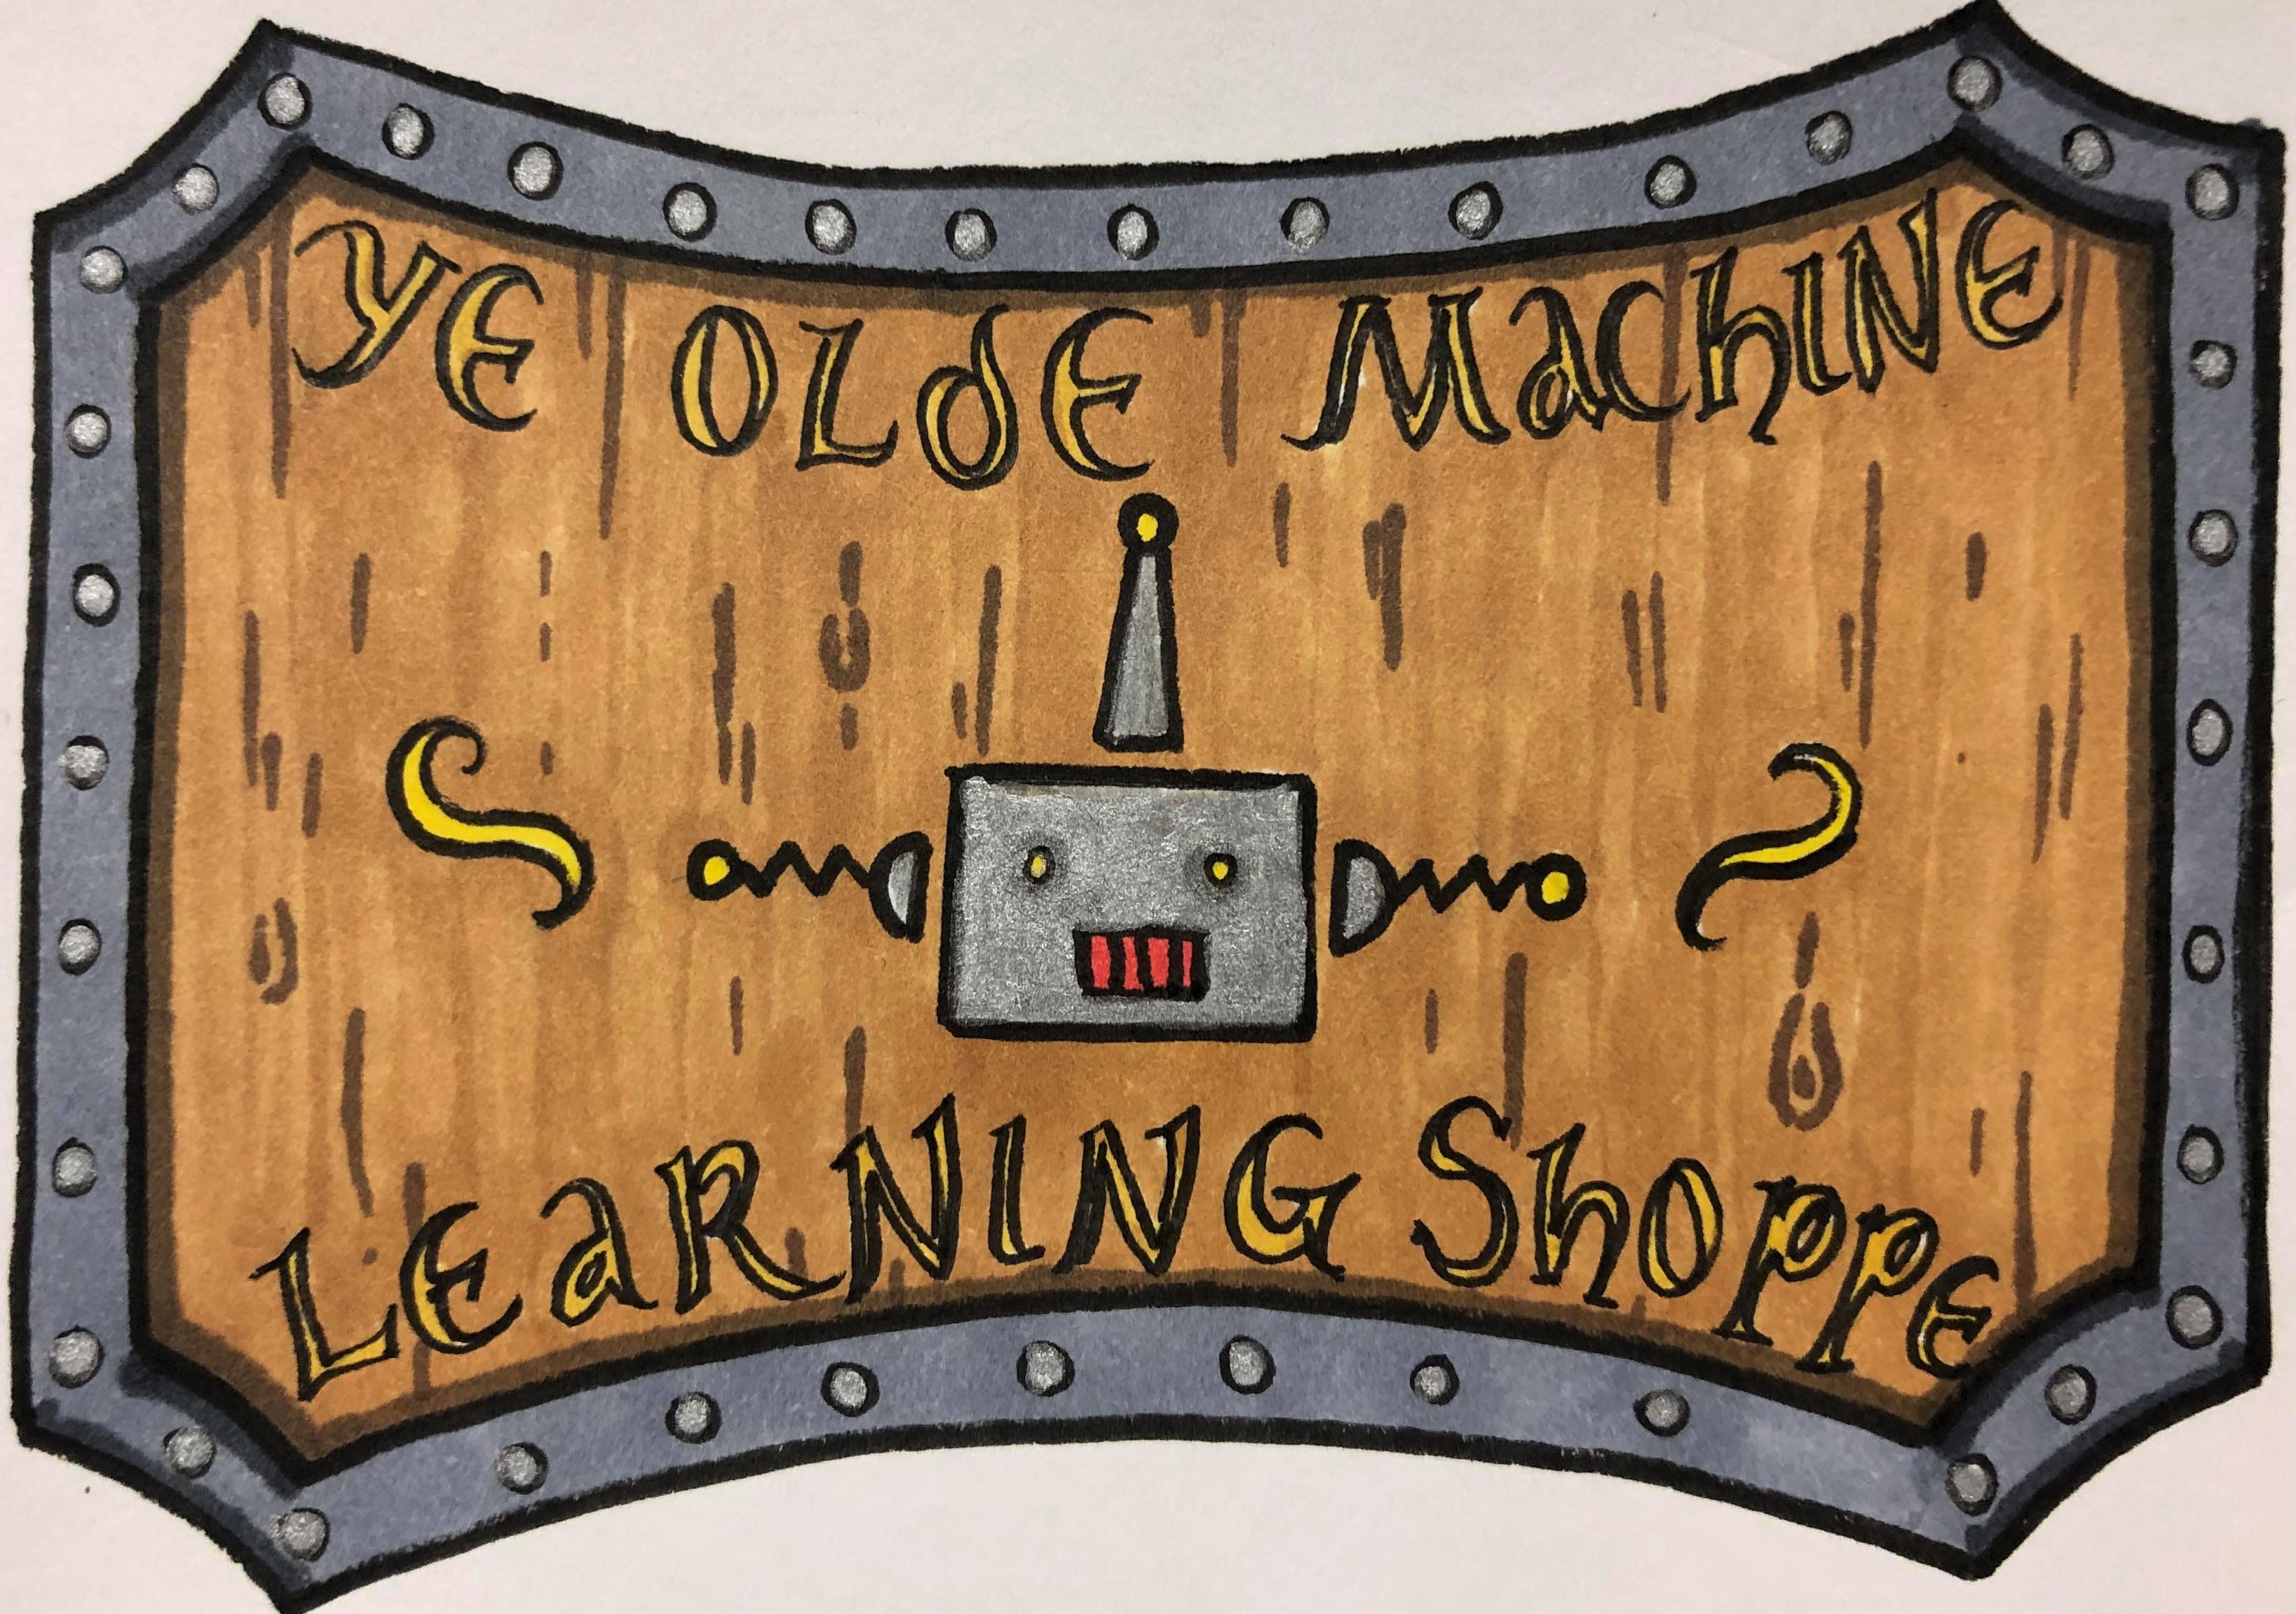 YE OLdE MachINE
LEaRNING ShoppE